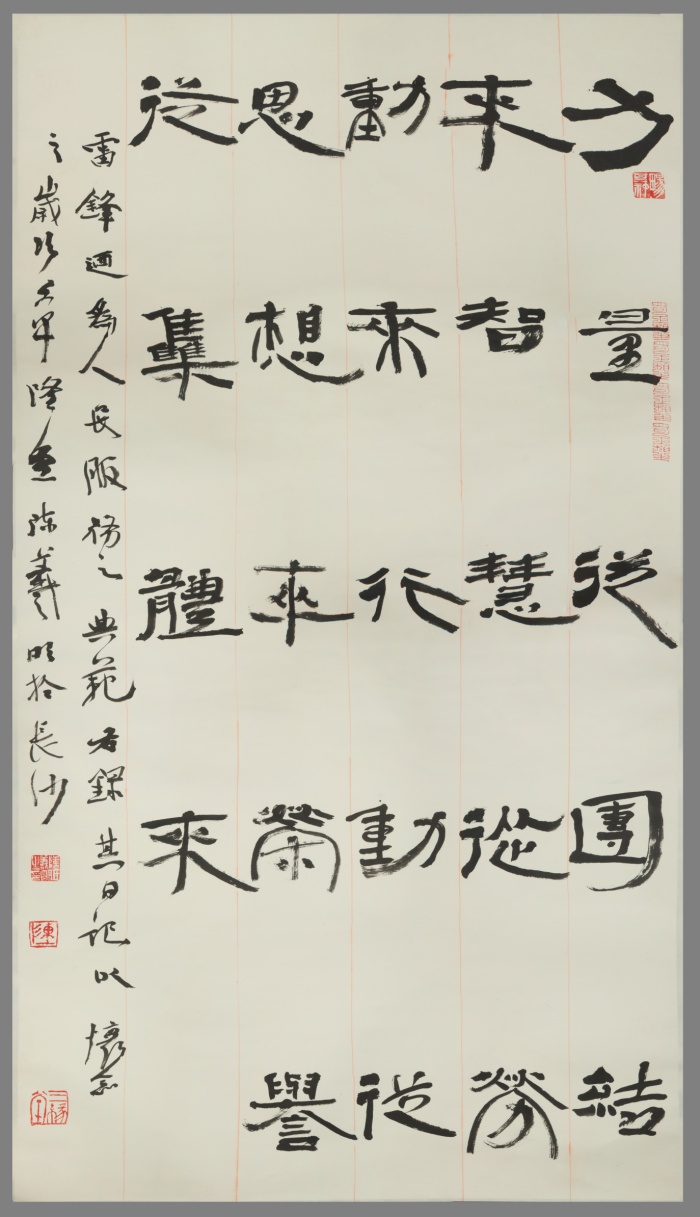 力量從團結
來智慧從勞
動來行動從
思想來榮譽
從集體來
雷鋒迺為人民服務之典範右錄其日記以懷念
之歲次隆陳羲明於長沙